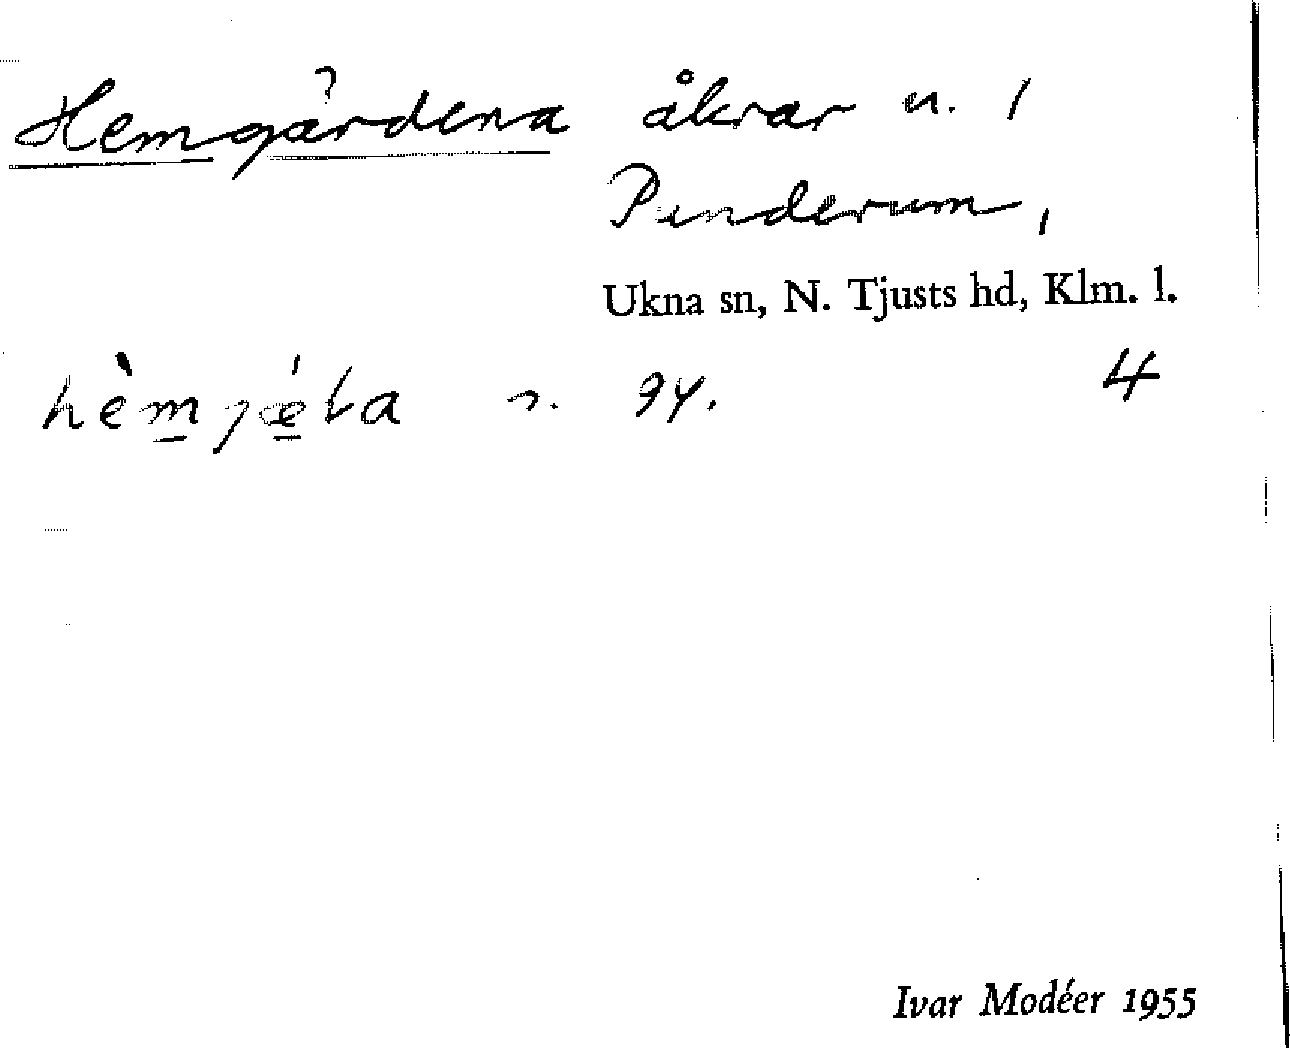 Hemgärdena åkrar u. /
Punderum,
Ukna sn, N. Tjusts hd, Klm. l.
hèmjéta 4
Ivar Modéer 1955